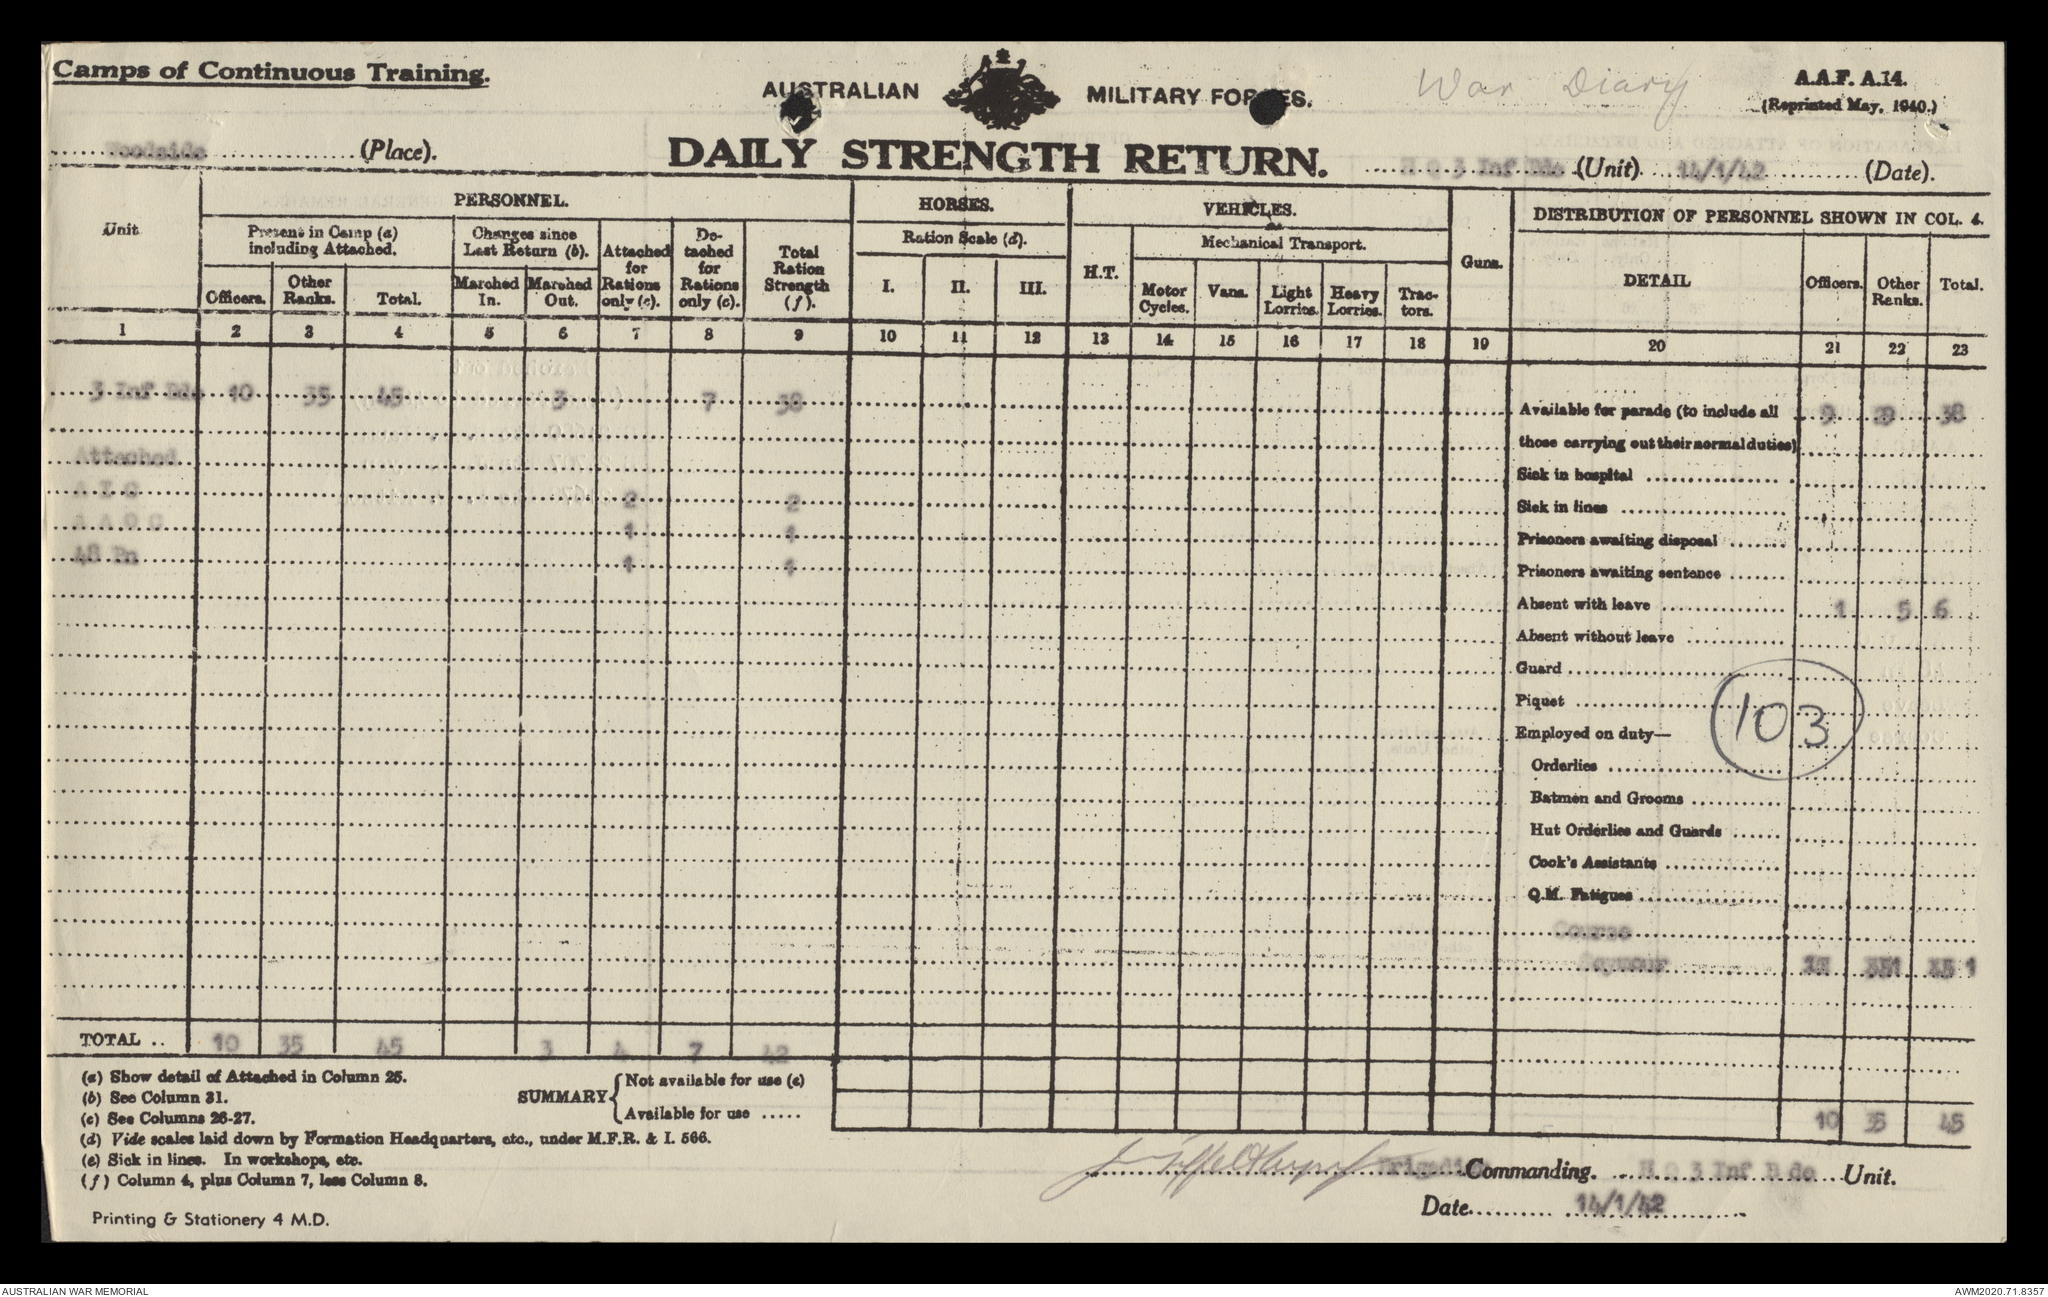 Camps of Continuous Training.
AUSTRALIAN MILITARY FORCES.
War Diary
A.A.F. A.14.
(Reprinted May, 1940.)
Woodside (Place).
DAILY STRENGTH RETURN.
H Q 3 Inf Bde (Unit) 14/1/42 (Date).
Unit
PERSONNEL.
HORSES.
VEHICLES.
Guns.
DISTRIBUTION OF PERSONNEL SHOWN IN COL. 4.
Present in Camp (a) including Attached.
Changes since Last Return (b).
Attached for Rations only (c).
Detached for Rations only (c).
Total Ration Strength (f).
Ration Scale (d).
H.T.
Mechanical Transport.
DETAIL
Officers.
Other Ranks.
Total.
Officers. Other Ranks. Total. Marched In. Marched Out.
I. II. III.
Motor Cycles. Vans. Light Lorries. Heavy Lorries. Tractors.
1 2 3 4 5 6 7 8 9 10 11 12 13 14 15 16 17 18 19 20 21 22 23
3 Inf Bde 10 35 45 3 7 38
Attached
A I C 2 2
A A O C 1 1
48 Bn 1 1
Available for parade (to include all those carrying out their normal duties) 9 29 38
Sick in hospital
Sick in lines
Prisoners awaiting disposal
Prisoners awaiting sentence
Absent with leave 1 5 6
Absent without leave
Guard
Piquet
Employed on duty—
Orderlies
Batmen and Grooms
Hut Orderlies and Guards
Cook's Assistants
Q.M. Fatigues
Course
Seymour 1 1
103
TOTAL .. 10 35 45 3 4 7 42
10 35 45
(a) Show detail of Attached in Column 25.
(b) See Column 31.
(c) See Columns 26-27.
(d) Vide scales laid down by Formation Headquarters, etc., under M.F.R. & I. 566.
(e) Sick in lines. In workshops, etc.
(f) Column 4, plus Column 7, less Column 8.
SUMMARY
Not available for use (e)
Available for use .....
Brigadier Commanding. H Q 3 Inf Bde Unit.
Date 14/1/42
Printing & Stationery 4 M.D.
AUSTRALIAN WAR MEMORIAL
AWM2020.71.8357